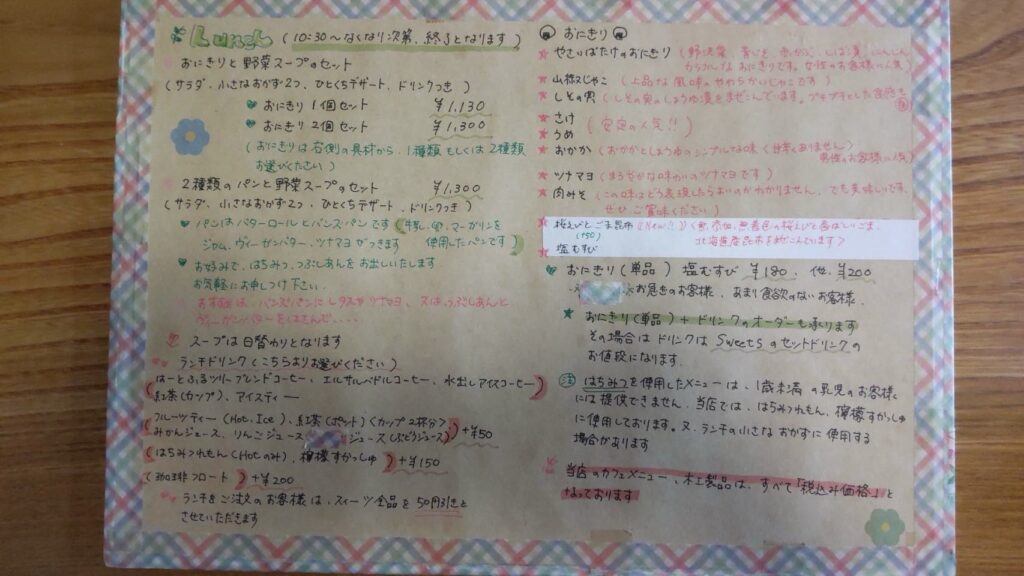 Lunch (10:30〜なくなり次第、終了となります)
おにぎりと野菜スープのセット
(サラダ、小さなおかず2つ、ひとくちデザート、ドリンクつき)
おにぎり1個セット ¥1,130
おにぎり2個セット ¥1,300
(おにぎりは右側の具材から、1種類もしくは2種類
お選びください)
2種類のパンと野菜スープのセット ¥1,300
(サラダ、小さなおかず2つ、ひとくちデザート、ドリンクつき)
パンはバターロールとバンズパンです(牛乳、卵、マーガリンを
ジャム、ヴィーガンバター、ツナマヨがつきます 使用したパンです)
お好みで、はちみつ、つぶしあんをお出しいたします
お気軽にお申しつけ下さい
おすすめは、バンズパンにレタスとツナマヨ、又は、つぶしあんと
ヴィーガンバターをはさんで....
スープは日替わりとなります
ランチドリンク(こちらよりお選びください)
(はーとふるツリーブレンドコーヒー、エルサルバドルコーヒー、水出しアイスコーヒー)
紅茶(カップ)、アイスティー
フルーツティー(Hot,Ice)、紅茶(ポット)(カップ2杯分)
みかんジュース、りんごジュース ジュース(ぶどうジュース) +¥50
(はちみつれもん(Hotのみ)、檸檬すかっしゅ) +¥150
(珈琲フロート) +¥200
ランチをご注文のお客様は、スイーツ全品を50円引きと
させていただきます
おにぎり
やさいばたけのおにぎり
カラフルなおにぎりです。女性のお客様に人気)
山椒じゃこ (上品な風味のやわらかいじゃこです)
しその実 (しその実のしょうゆ漬をまぜこんでいます。プチプチとした食感も
さけ
うめ (安定の人気!!)
おかか (おかかとしょうゆのシンプルな味
男性のお客様に人気)
ツナマヨ (まろやかな味わいのツナマヨです)
肉みそ (この味はどう表現したらよいのかわかりません。でも美味しいです。
ぜひ、ご賞味ください)
桜えびとごま昆布 (New!!) (無添加、無着色の桜えびと香ばしいごま、
(+50) 北海道産昆布を
塩むすび
おにぎり(単品) 塩むすび ¥180、他、¥200
お急ぎのお客様、あまり食欲のないお客様、
おにぎり(単品)+ドリンクのオーダーも承ります
その場合はドリンクはSweetsのセットドリンクの
お値段になります。
注 はちみつを使用したメニューは、1歳未満の乳児のお客様
には提供できません。当店では、はちみつれもん、檸檬すかっしゅ
に使用しております。又、ランチの小さなおかずに使用する
場合があります
当店のカフェメニュー、木工製品は、すべて「税込み価格」と
なっております